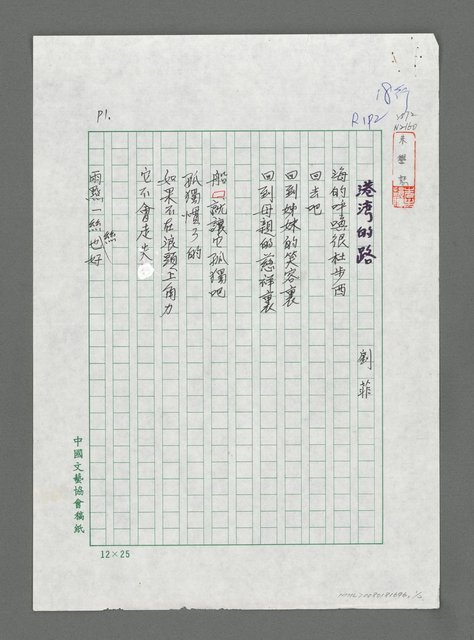 P1.
18行
R1P2
港湾的路 劉菲
海的呼喚很杜步西
回去吧
回到姊妹的笑容裏
回到母親的慈祥裏
船就讓它孤獨吧
孤獨慣了的
如果不在浪頭上角力
它不會走失
雨點一絲絲也好
中國文藝協會稿紙
12×25